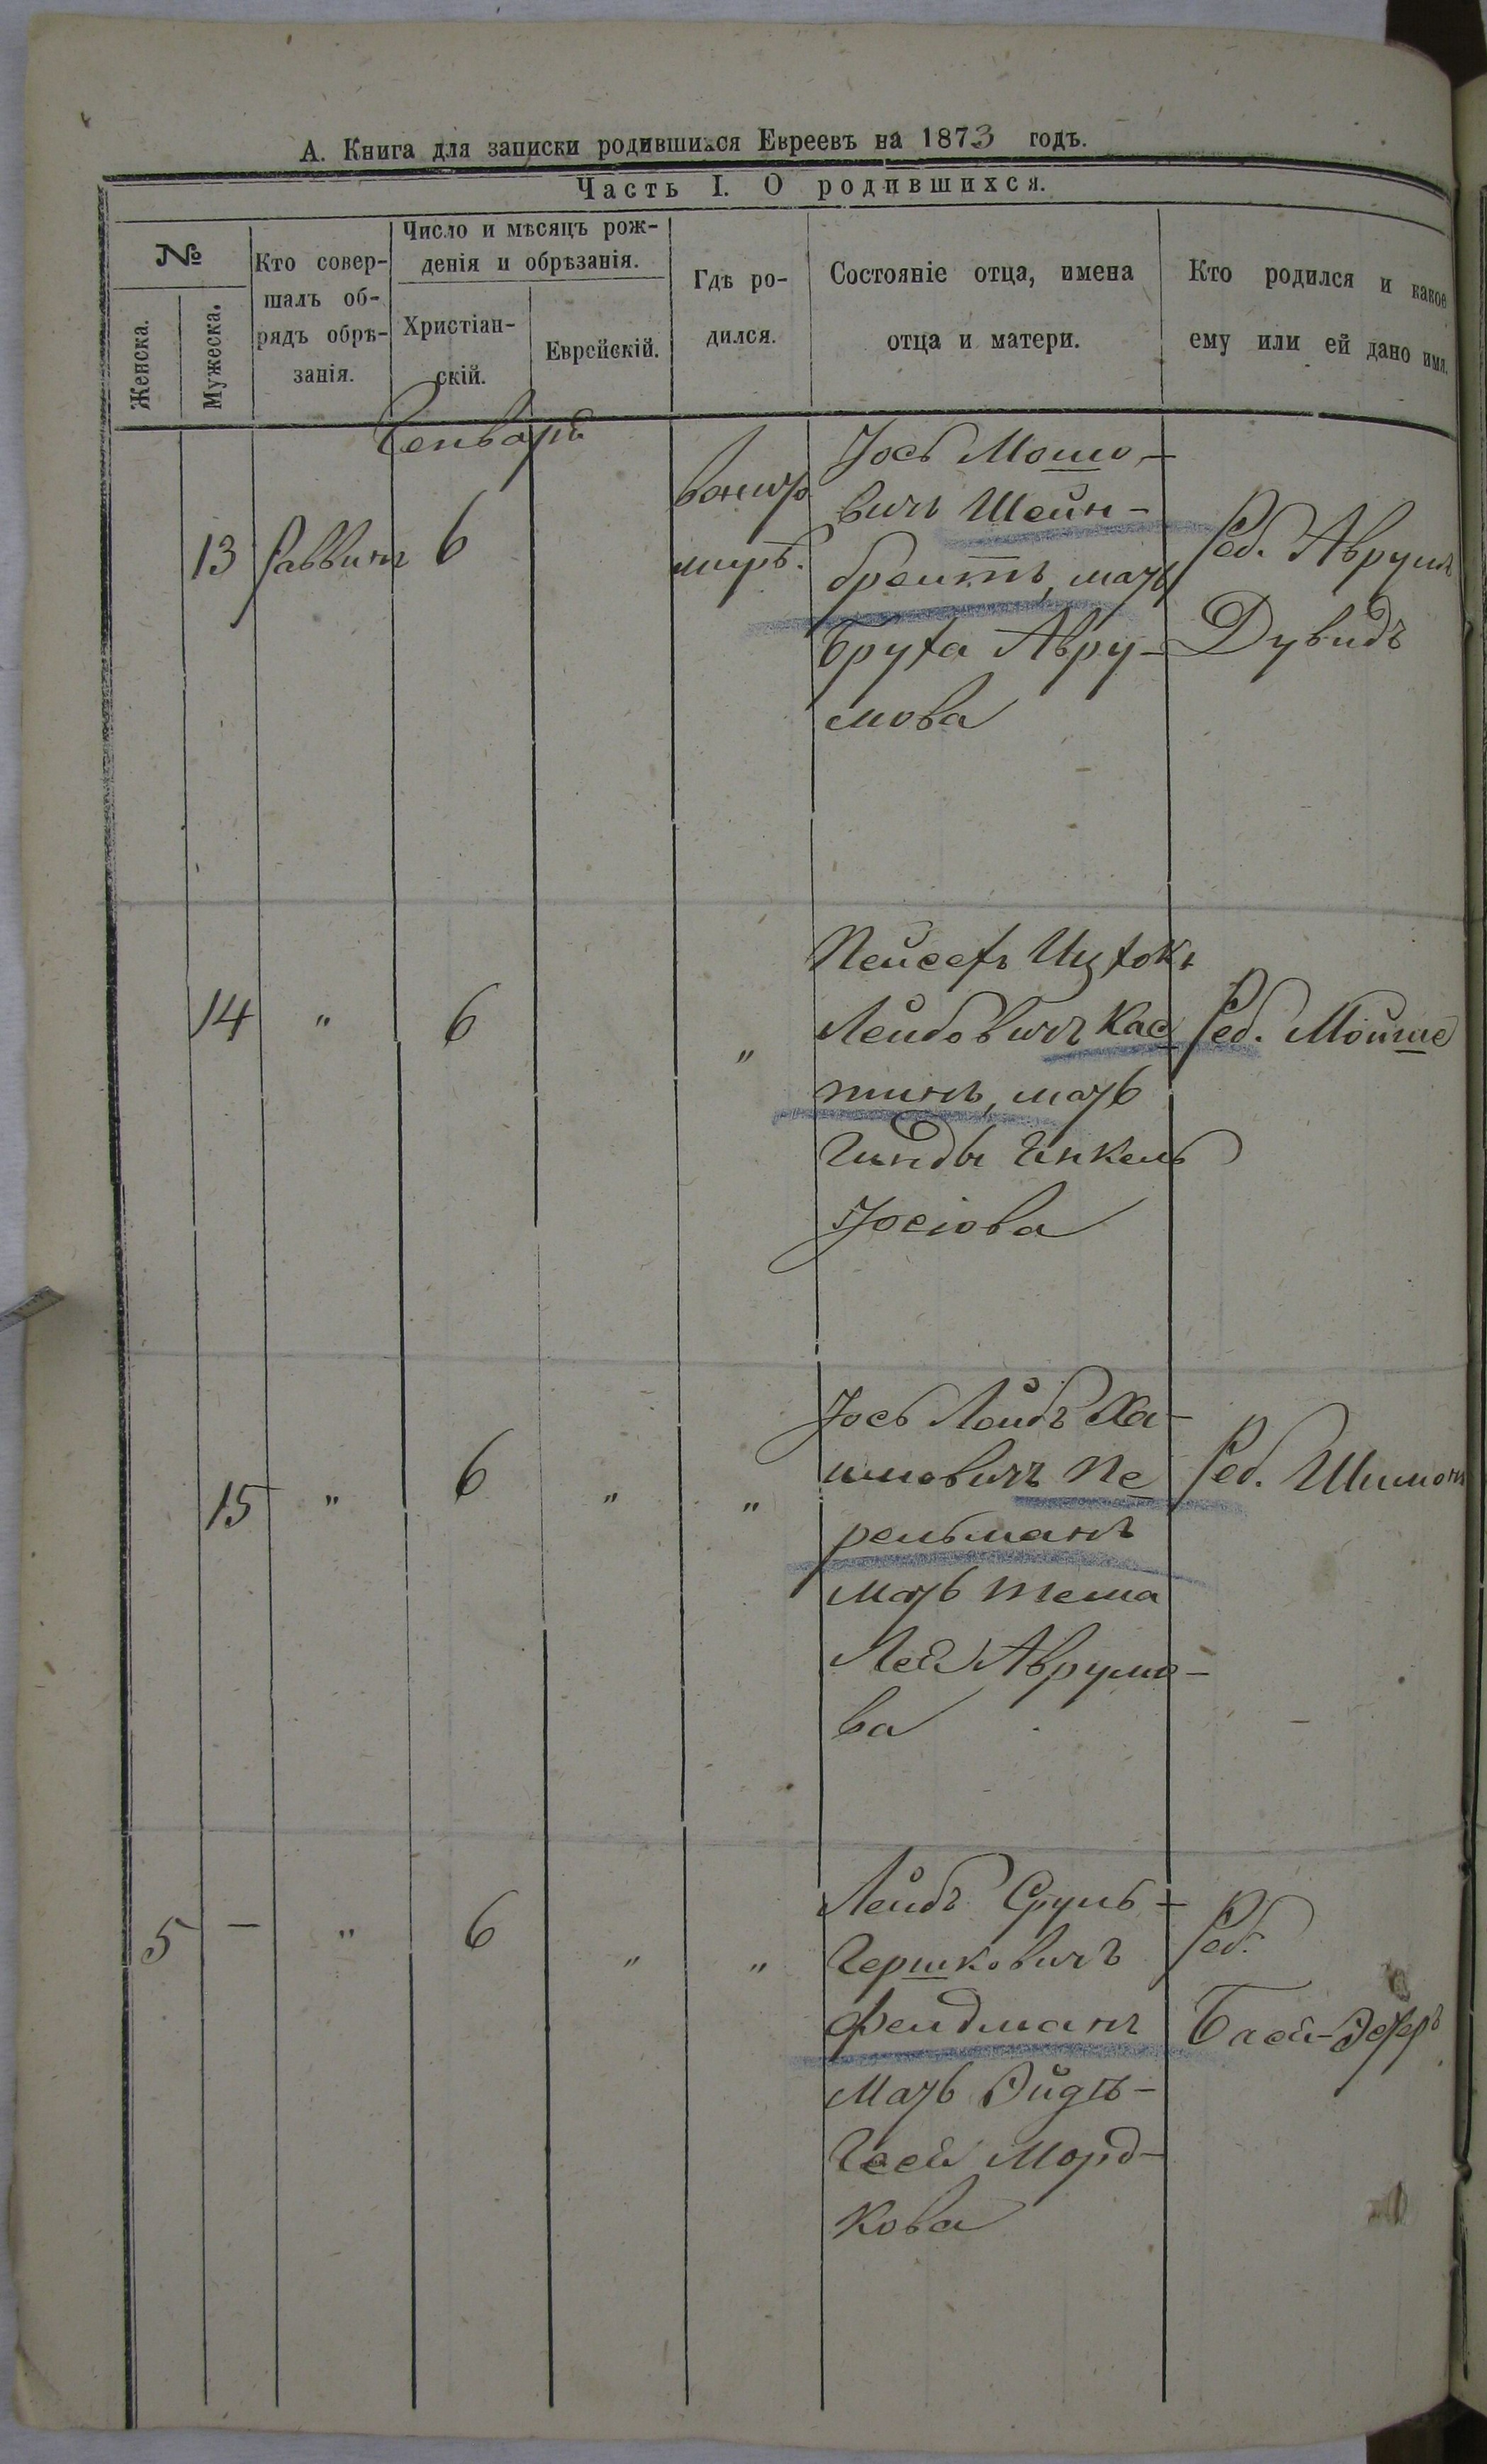 А. Книга для записки родившихся Евреевъ на 1873 годъ.
Часть I. О родившихся.
№
Женска.
Мужеска.
Кто совер-
шалъ об-
рядъ обрѣ-
занія.
Число и мѣсяцъ рож-
денія и обрѣзанія.
Христіан-
скій.
Еврейскій.
Гдѣ ро-
дился.
Состояніе отца, имена
отца и матери.
Кто родился и какое
ему или ей дано имя.
Генваря
13
Раввинъ
6
Іось Мошо-
вичъ Шейн-
брейтъ, мать
Бруха Авру-
мова
Реб. Аврумъ
Дувидъ
14
"
6
"
Пейсехъ Ицхокъ
Лейбовичъ Кас
тинъ, мать
Гинды
Іосіова
Реб. Мойше
15
"
6
"
"
Іось Лейбъ Ха-
имовичъ Пе
рельманъ
мать тема
Лея Аврумо-
ва
Реб. Шимонъ
5
—
"
6
"
"
Лейбъ Сруль-
Гершковичъ
Фельдманъ
Мать
Морд-
кова
Реб.